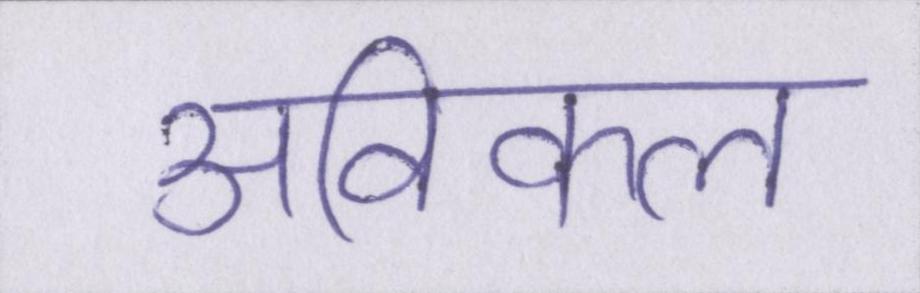 अविकल